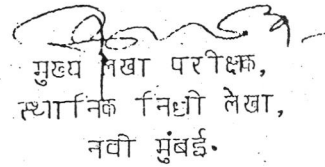 मुख्य लेखा परीक्षक,
स्थानिक निधी लेखा,
नवी मुंबई.